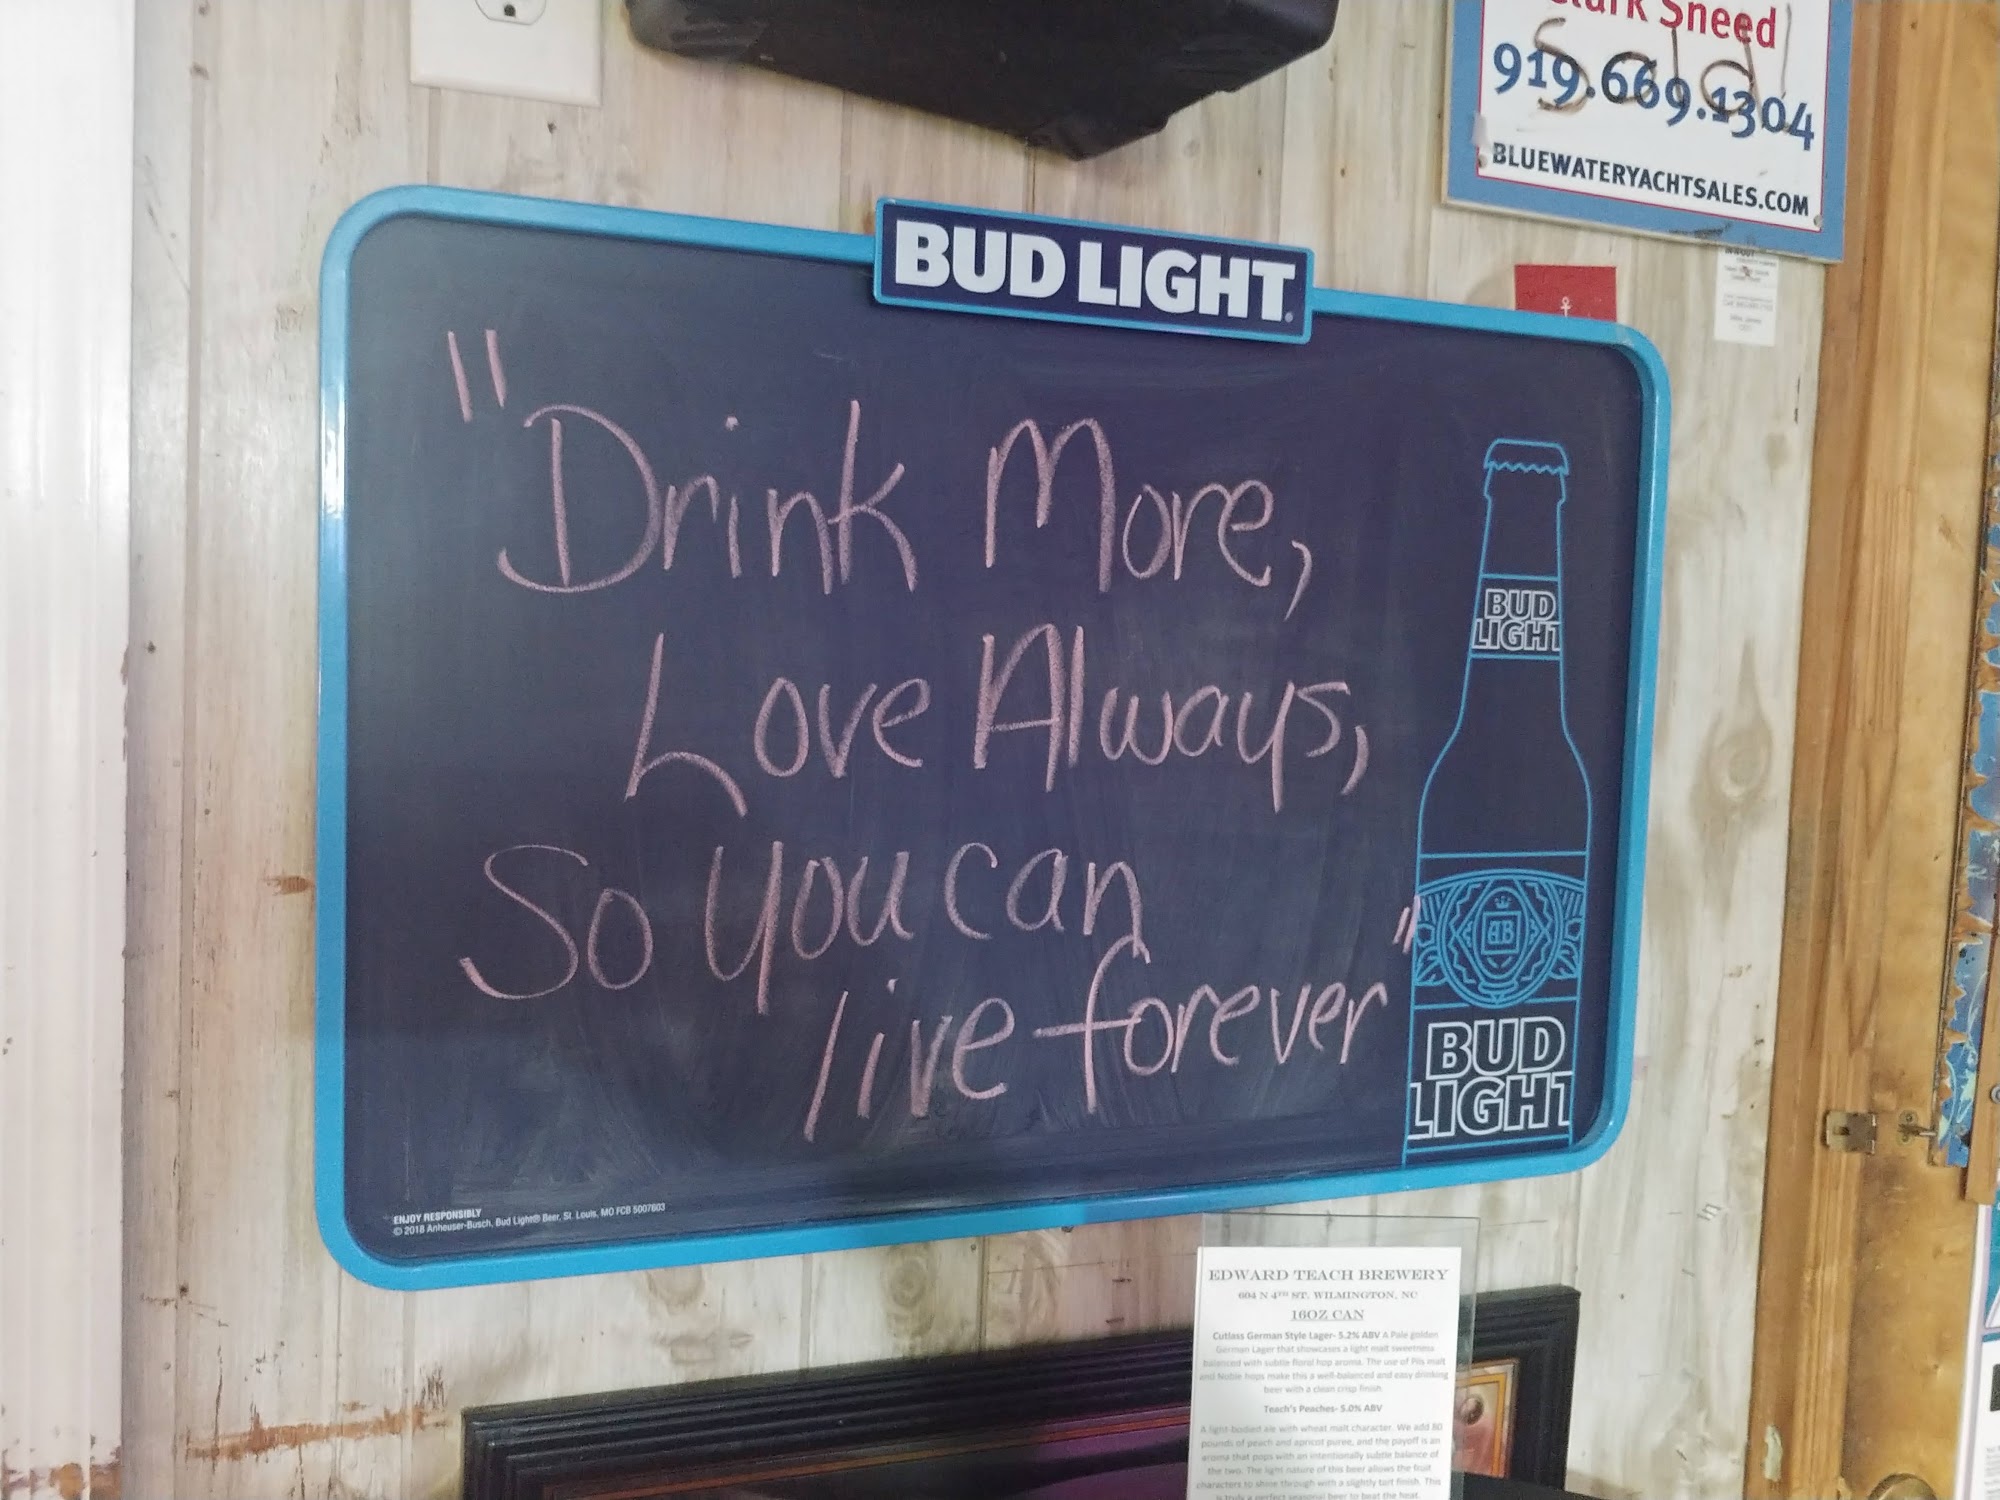 Clark Sneed
919.669.1304
Sold!
BLUEWATERYACHTSALES.COM
BUD LIGHT
"Drink More,
Love Always,
So you can
live forever"
BUD
LIGHT
AB
BUD
LIGHT
ENJOY RESPONSIBLY
© 2018 Anheuser-Busch, Bud Light® Beer, St. Louis, MO FCB 5007603
EDWARD TEACH BREWERY
604 N 4TH ST. WILMINGTON, NC
16OZ CAN
Cutlass German Style Lager- 5.2% ABV A Pale golden
German Lager that showcases a light malt sweetness
balanced with subtle floral hop aroma. The use of Pils malt
and Noble hops make this a well-balanced and easy drinking
beer with a clean crisp finish.
Teach's Peaches- 5.0% ABV
A light-bodied ale with wheat malt character. We add 80
pounds of peach and apricot puree, and the payoff is an
aroma that pops with an intentionally subtle balance of
the two. The light nature of this beer allows the fruit
characters to shine through with a slightly tart finish. This
is truly a perfect seasonal beer to beat the heat.